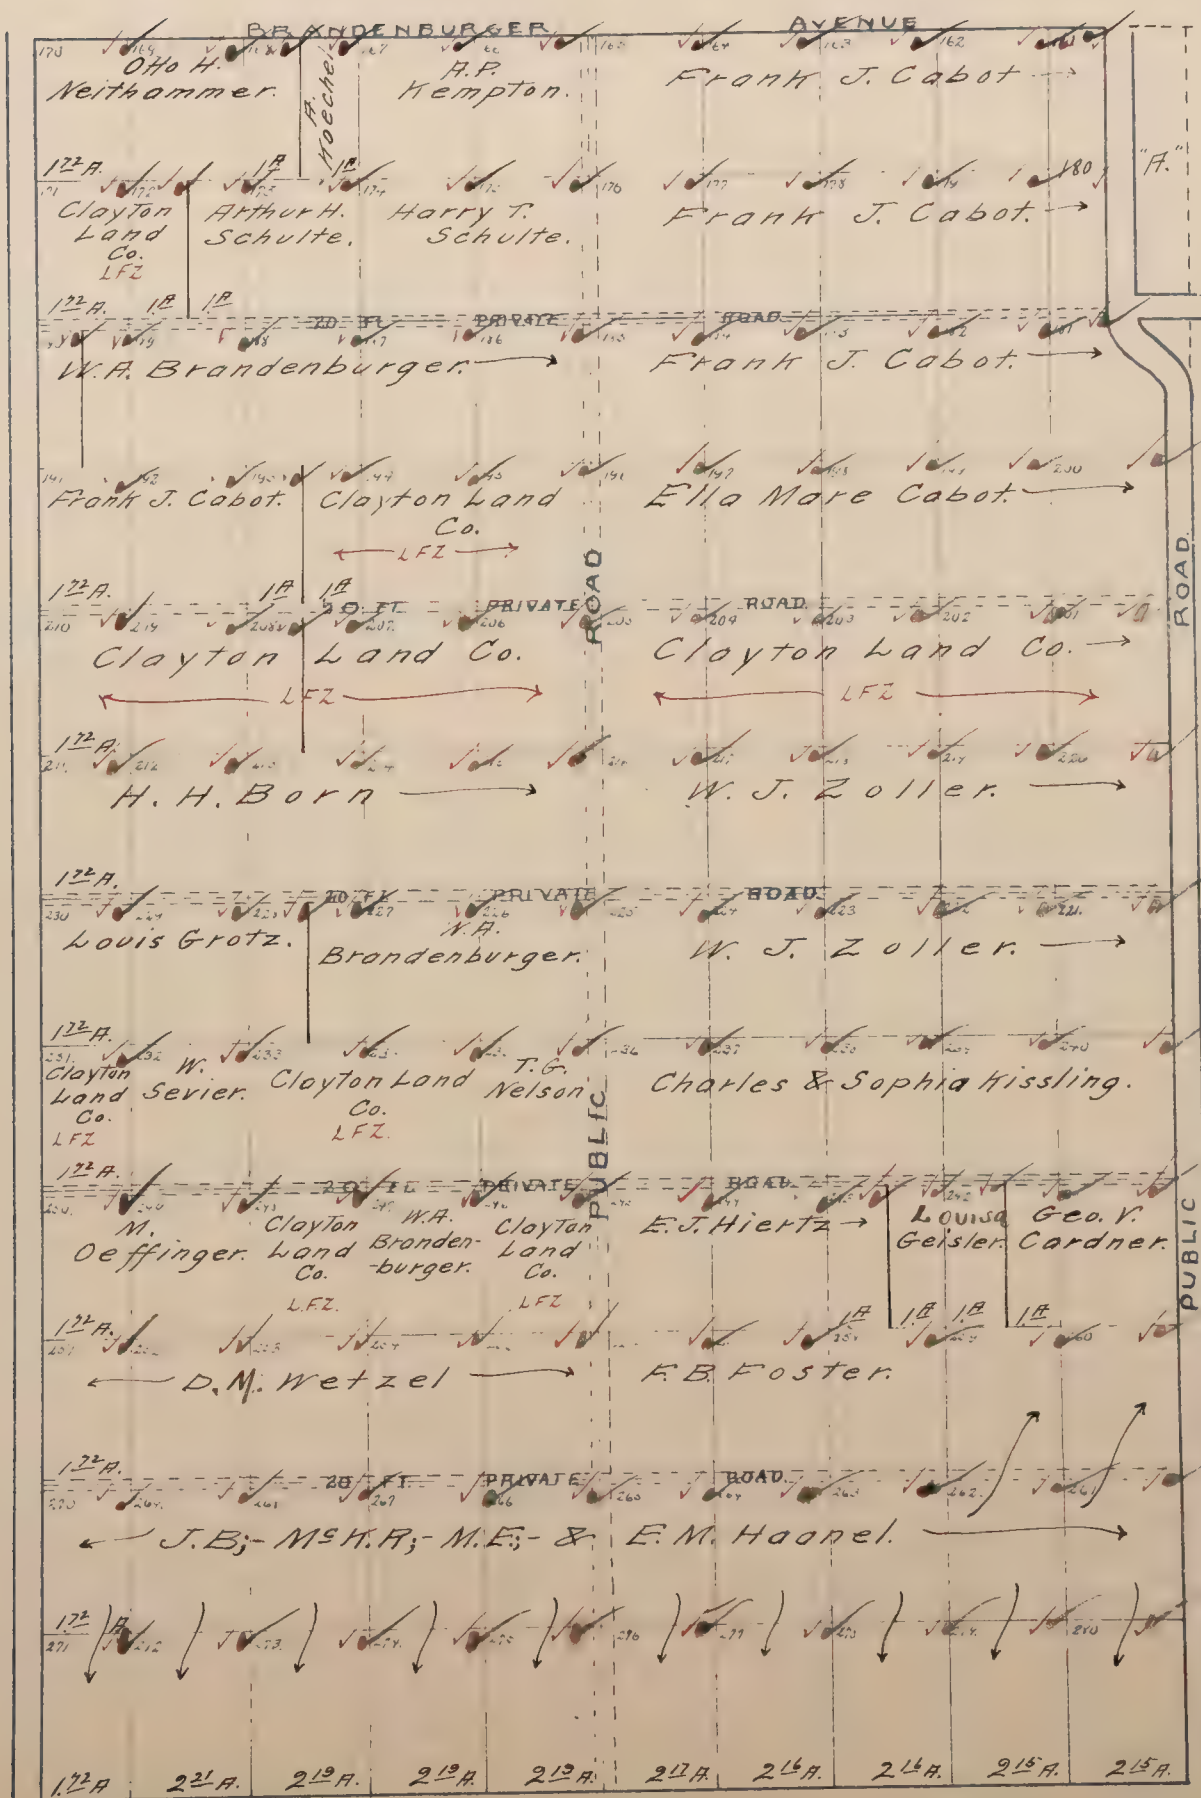 BRANDENBURGER AVENUE
170 169 168 167 166 165 164 163 162 161
Otto H. Neithammer.
A. Koechel
A.P. Kempton.
Frank J. Cabot
"A."
1 72 A. 1 A 1 A
171 172 173 174 175 176 177 178 179 180
Clayton Land Co.
LFZ
Arthur H. Schulte.
Harry T. Schulte.
Frank J. Cabot.
1 72 A. 1 A 1 A
20 FT. PRIVATE ROAD.
189 188 187 186 185 184 182 181
W.A. Brandenburger.
Frank J. Cabot.
191 192 194 195 197 198 200
Frank J. Cabot.
Clayton Land Co.
LFZ
Ella Mare Cabot.
1 72 A. 1 A 1 A
20 FT. PRIVATE ROAD.
ROAD
ROAD.
210 219 208 207. 206 205 204 203 202 201
Clayton Land Co.
Clayton Land Co.
LFZ
LFZ
1 72 A.
211. 212 213 214 216 217 218 219 220
H. H. Born
W. J. Zoller.
1 72 A.
20 FT. PRIVATE ROAD.
230 229 228 227 226 225 224 223 222 221.
Louis Grotz.
W.A. Brandenburger.
W. J. Zoller.
1 72 A.
231. 232 233 236 237 239 240
Clayton Land Co.
LFZ
W. Sevier.
Clayton Land Co.
LFZ.
T.G. Nelson.
Charles & Sophia Kissling.
1 72 A.
20 FT. PRIVATE ROAD.
PUBLIC
PUBLIC
250. 242
M. Oeffinger.
Clayton Land Co.
L.F.Z.
W.A. Branden-
-burger.
Clayton Land Co.
LFZ
E.J. Hiertz
Louisa Geisler.
Geo. V. Cardner.
1 72 A. 1 A 1 A 1 A 1 A
251 253 254 259 260
D.M. Wetzel
F.B. Foster.
1 72 A.
20 FT. PRIVATE ROAD.
270 269. 268 267 266 265 264 263 262. 261
J.B;- McK.R;- M.E;- & E.M. Haanel.
1 72 A
271 272 273. 274. 275 276 277 278 279. 280
1 72 A. 2 21 A. 2 19 A. 2 19 A. 2 19 A. 2 17 A. 2 16 A. 2 16 A. 2 15 A. 2 15 A.